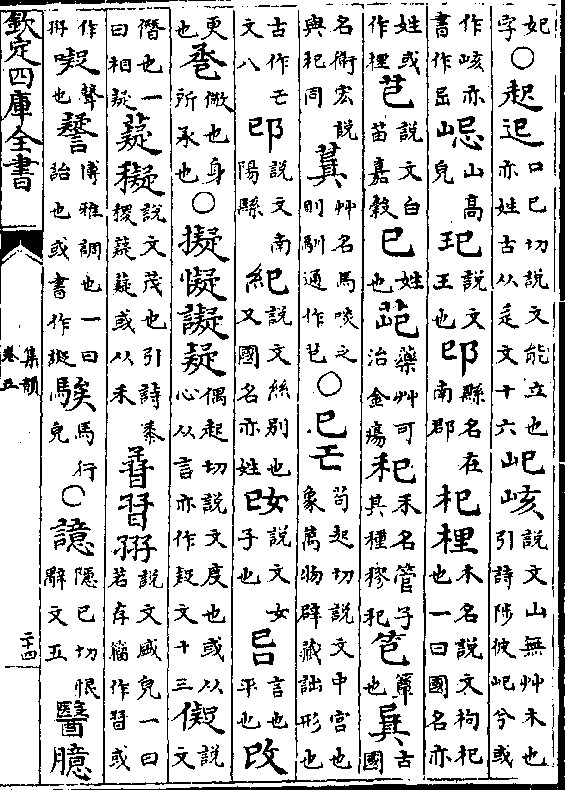 妃字○起𨑔口巳切說文能立也亦姓古从辵文十六屺峐說文山無艸木也引詩陟彼屺兮或
作峐亦書作㞯山高皃玘說文玉也邔縣名在南郡杞梩木名說文枸杞也一曰國名亦
姓或作梩芑說文白苗嘉穀巳姓也藥艸可治金瘍禾名管子其種穋杞簟也㠱古國
名衞宏說與杞同萁艸名馬啖之則馴通作芑○己苟起切說文中宮也象萬物辟藏詘形也
古作文八邔說文南陽縣紀說文絲別也又國名亦姓妀說文女子也言也平也改
更也巹儆也身所承也○擬懝譺疑偶起切說文度也或从心从言亦作疑文十三儗說文
僭也一曰相疑薿說文茂也引詩黍稷薿薿或从禾說文盛皃一曰若存籀作或
作聲也博雅調也一曰詒也或書作譺騃馬行皃○譩隱已切恨辭文五醫臆
欽定四庫全書
集韻
卷五
二十四